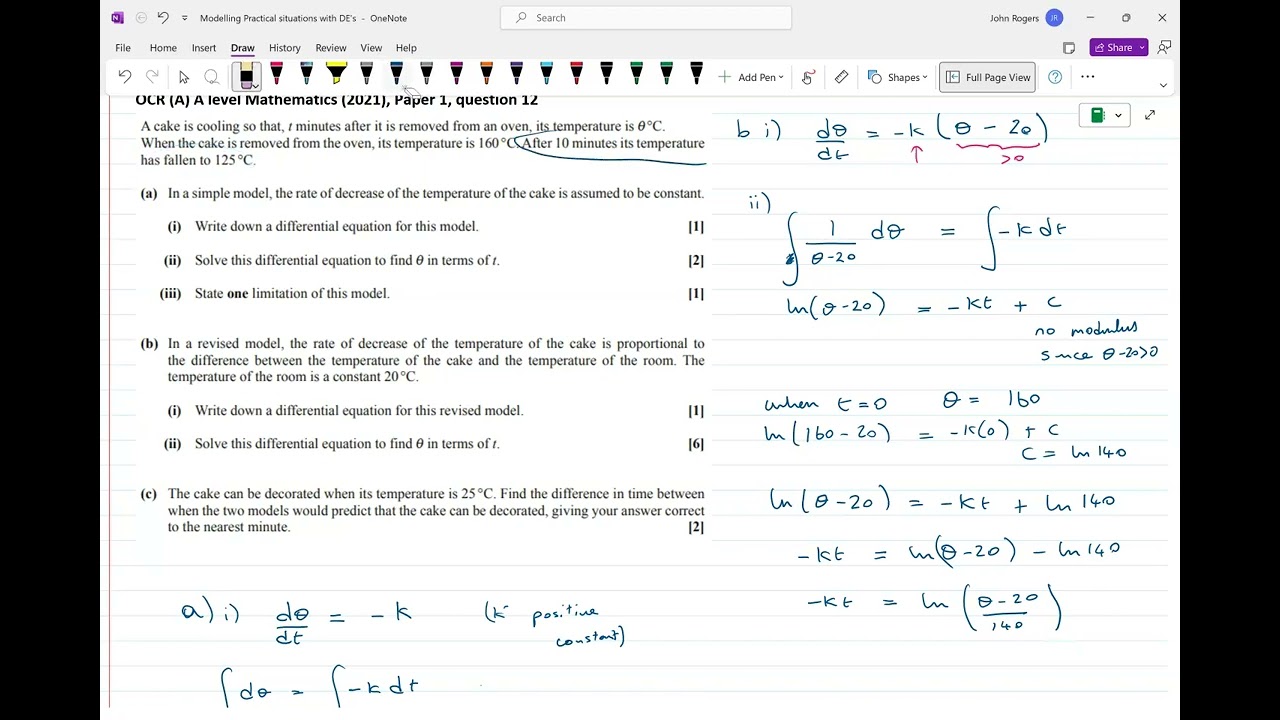 Modelling Practical situations with DE's - OneNote
Search
John Rogers JR
File Home Insert Draw History Review View Help
Share
Add Pen
Shapes
Full Page View
OCR (A) A level Mathematics (2021), Paper 1, question 12
A cake is cooling so that, t minutes after it is removed from an oven, its temperature is θ°C.
When the cake is removed from the oven, its temperature is 160°C. After 10 minutes its temperature
has fallen to 125°C.
(a) In a simple model, the rate of decrease of the temperature of the cake is assumed to be constant.
(i) Write down a differential equation for this model. [1]
(ii) Solve this differential equation to find θ in terms of t. [2]
(iii) State one limitation of this model. [1]
(b) In a revised model, the rate of decrease of the temperature of the cake is proportional to
the difference between the temperature of the cake and the temperature of the room. The
temperature of the room is a constant 20°C.
(i) Write down a differential equation for this revised model. [1]
(ii) Solve this differential equation to find θ in terms of t. [6]
(c) The cake can be decorated when its temperature is 25°C. Find the difference in time between
when the two models would predict that the cake can be decorated, giving your answer correct
to the nearest minute. [2]
a) i) dθ/dt = -k (k positive
constant)
∫ dθ = ∫ -k dt
b i) dθ/dt = -k (θ - 20)
↑ >0
ii)
∫ 1/(θ-20) dθ = ∫ -k dt
ln(θ-20) = -kt + c
no modulus
since θ-20>0
when t=0 θ = 160
ln(160-20) = -k(0) + c
c = ln 140
ln(θ-20) = -kt + ln 140
-kt = ln(θ-20) - ln 140
-kt = ln((θ-20)/140)